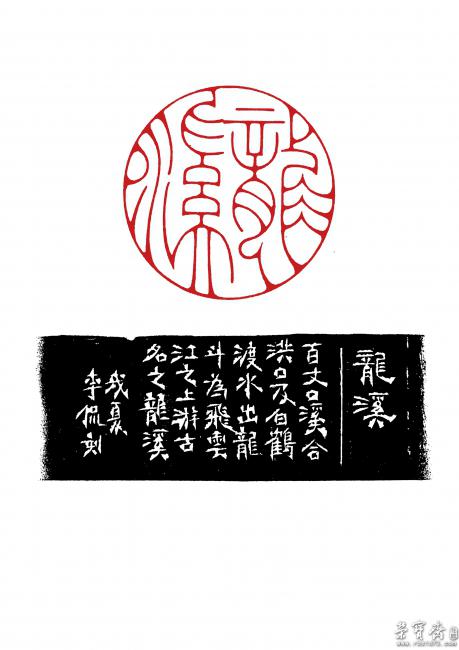 龍溪
龍溪
百丈口溪合
洪口及白鶴
渡水出龍
斗為飛雲
江之上游古
名之龍溪
我夏
李侃刻
荣宝斋